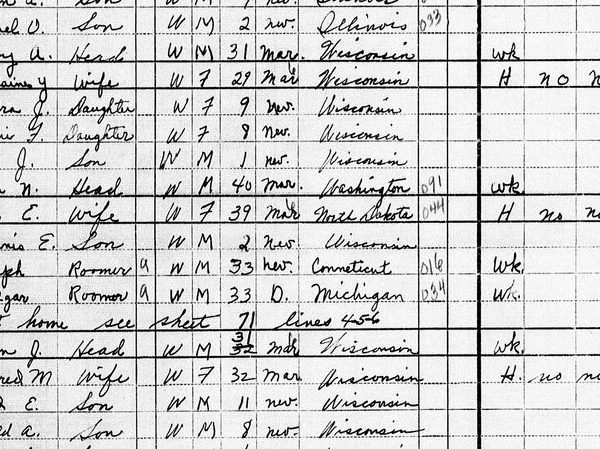 a. Son W M nev.
el O. Son W M 2 nev. Illinois 033
y A. Head W M 31 Mar. Wisconsin wk
aines y Wife W F 29 Mar Wisconsin H no n
ra J. Daughter W F 9 Nev. Wisconsin
ie F. Daughter W F 8 Nev. Wisconsin
J. Son W M 1 nev. Wisconsin
n N. Head W M 40 Mar. Washington 091 wk.
E. Wife W F 39 Mar North Dakota 044 H no no
nis E. Son W M 2 Nev. Wisconsin
ph Roomer 9 W M 33 nev. Conneticut 016 Wk.
gar Roomer 9 W M 33 D. Michigan 034 Wk.
t home see sheet 71 lines 4-5-6
n J. Head W M 31 32 Mar Wisconsin wk.
red M Wife W F 32 Mar Wisconsin H. no no
E. Son W M 11 nev. Wisconsin
d a. Son W M 8 nev. Wisconsin